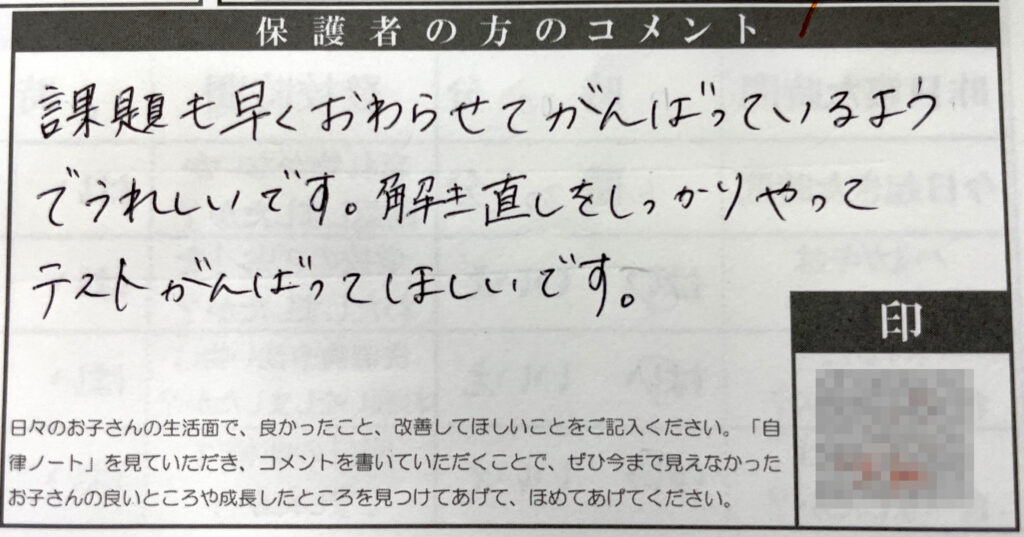 保護者の方のコメント
課題も早くおわらせてがんばっているよう
でうれしいです。解き直しをしっかりやって
テストがんばってほしいです。
印
日々のお子さんの生活面で、良かったこと、改善してほしいことをご記入ください。「自
律ノート」を見ていただき、コメントを書いていただくことで、ぜひ今まで見えなかった
お子さんの良いところや成長したところを見つけてあげて、ほめてあげてください。